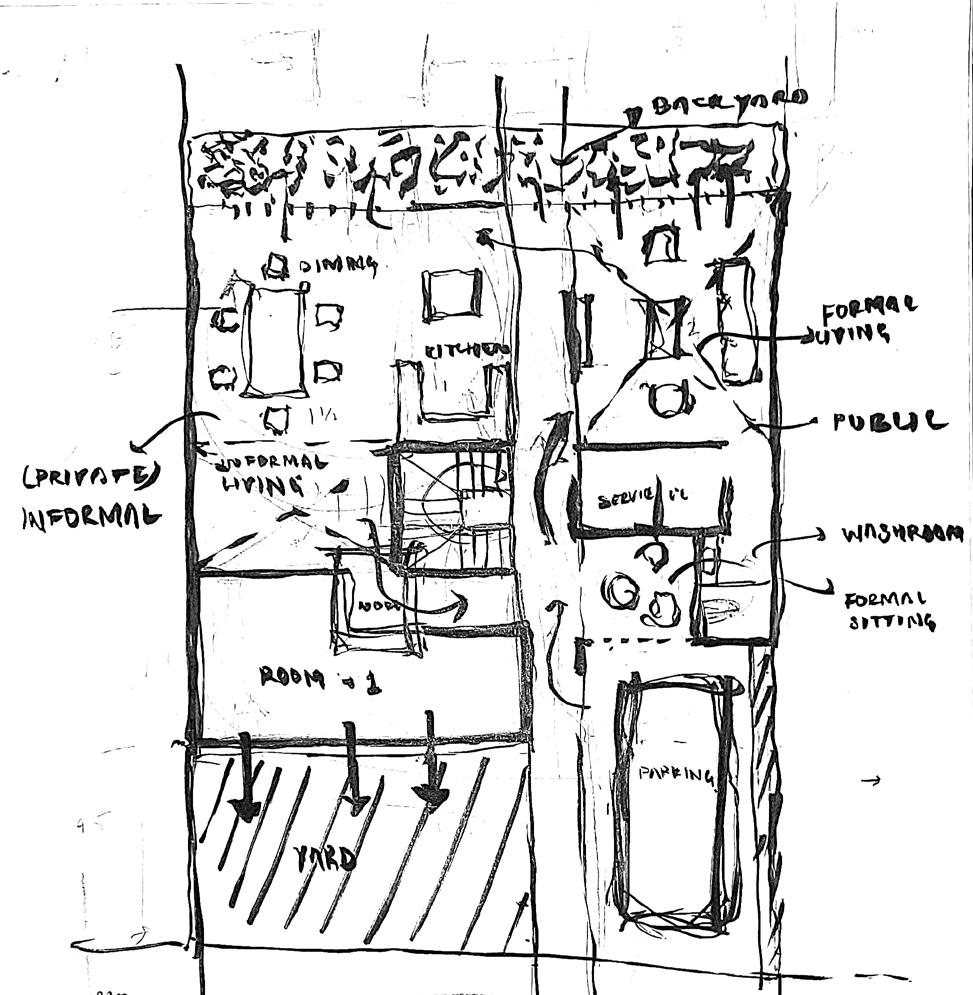 BACKYARD
DINING
KITCHEN
FORMAL
LIVING
PUBLIC
(PRIVATE)
INFORMAL
INFORMAL
LIVING
SERVICE
WASHROOM
FORMAL
SITTING
ROOM - 1
PARKING
YARD